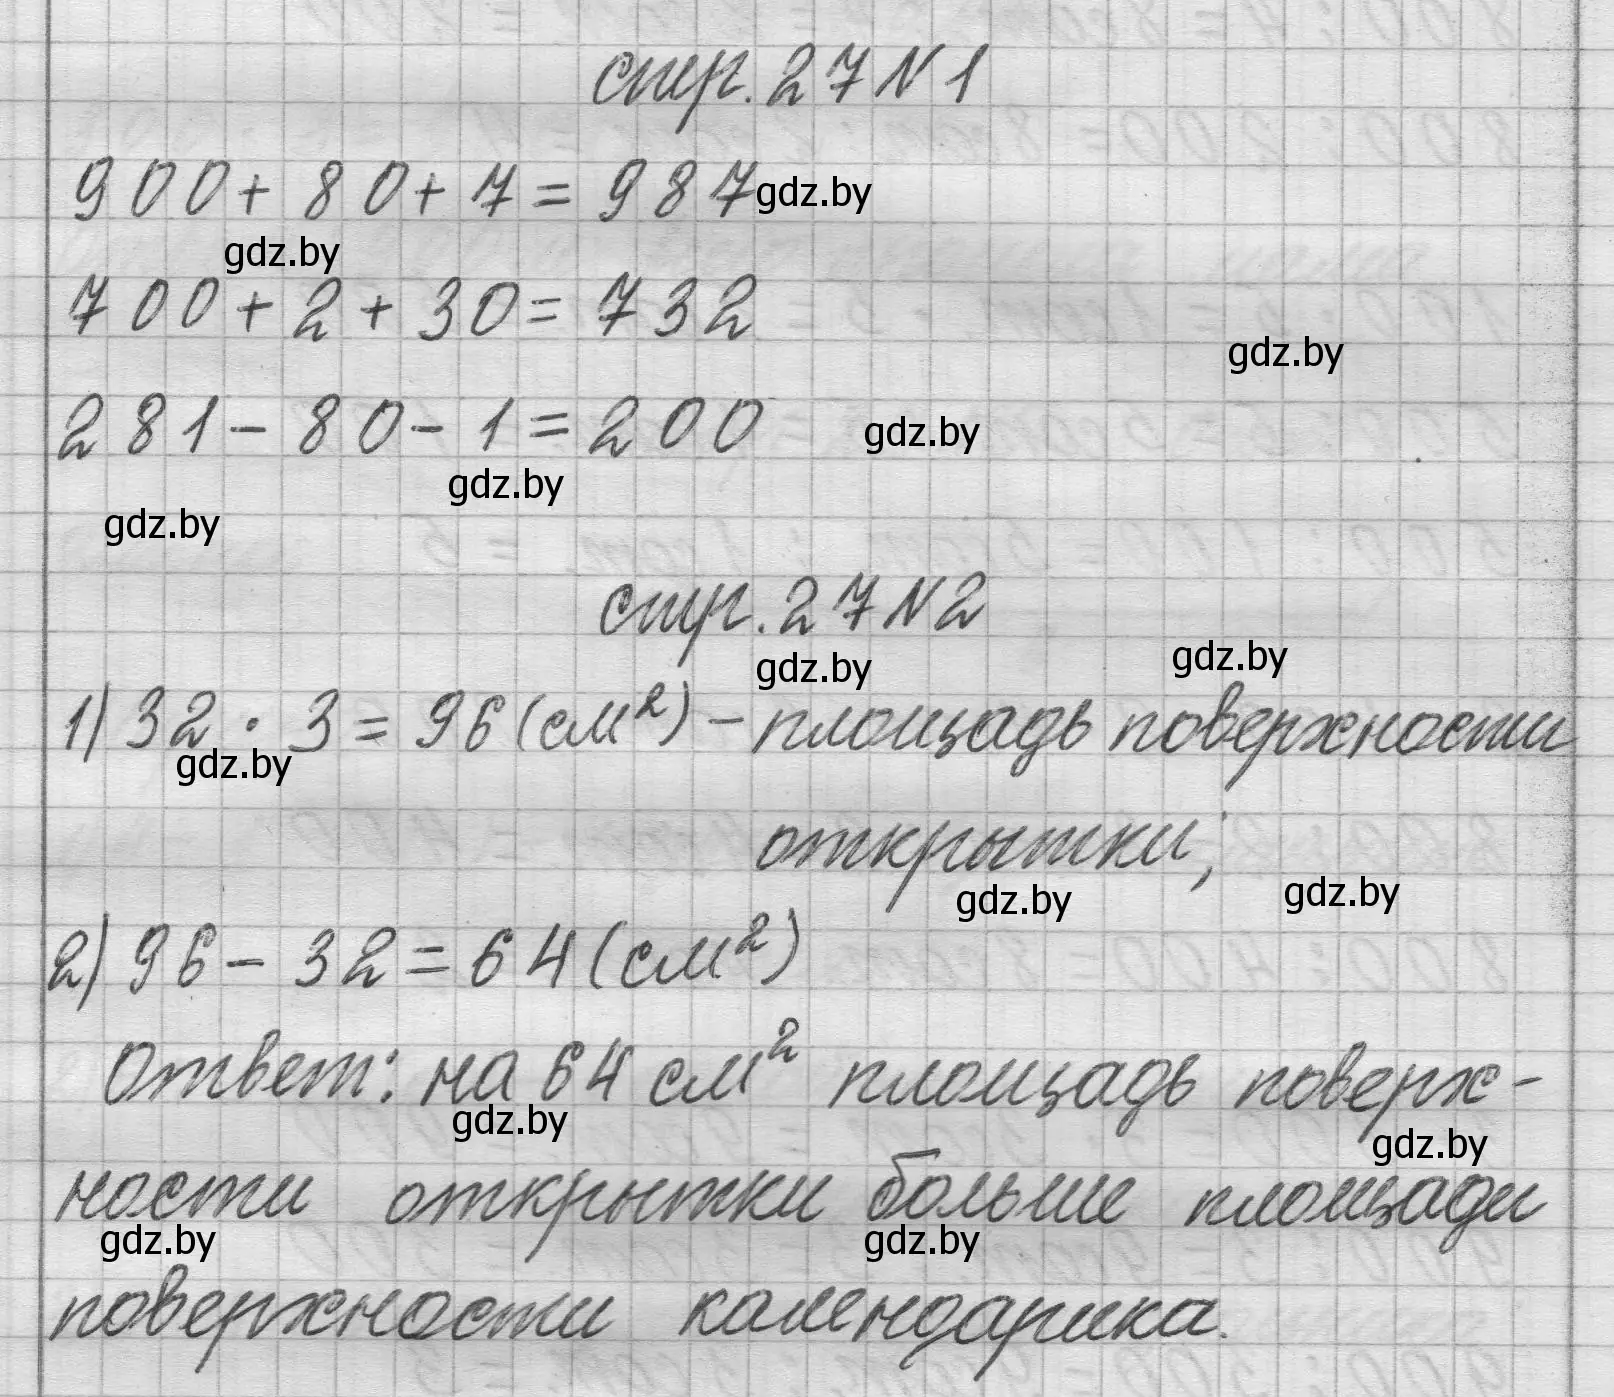 стр. 27 N 1
900 + 80 + 7 = 987 gdz.by
gdz.by
700 + 2 + 30 = 732
gdz.by
281 - 80 - 1 = 200 gdz.by
gdz.by
gdz.by
стр. 27 N 2
gdz.by gdz.by
1) 32 · 3 = 96 (см²) – площадь поверхности
gdz.by
открытки;
gdz.by gdz.by
2) 96 - 32 = 64 (см²)
Ответ: на 64 см² площадь поверх-
gdz.by gdz.by
ности открытки больше площади
gdz.by gdz.by
поверхности календарика.